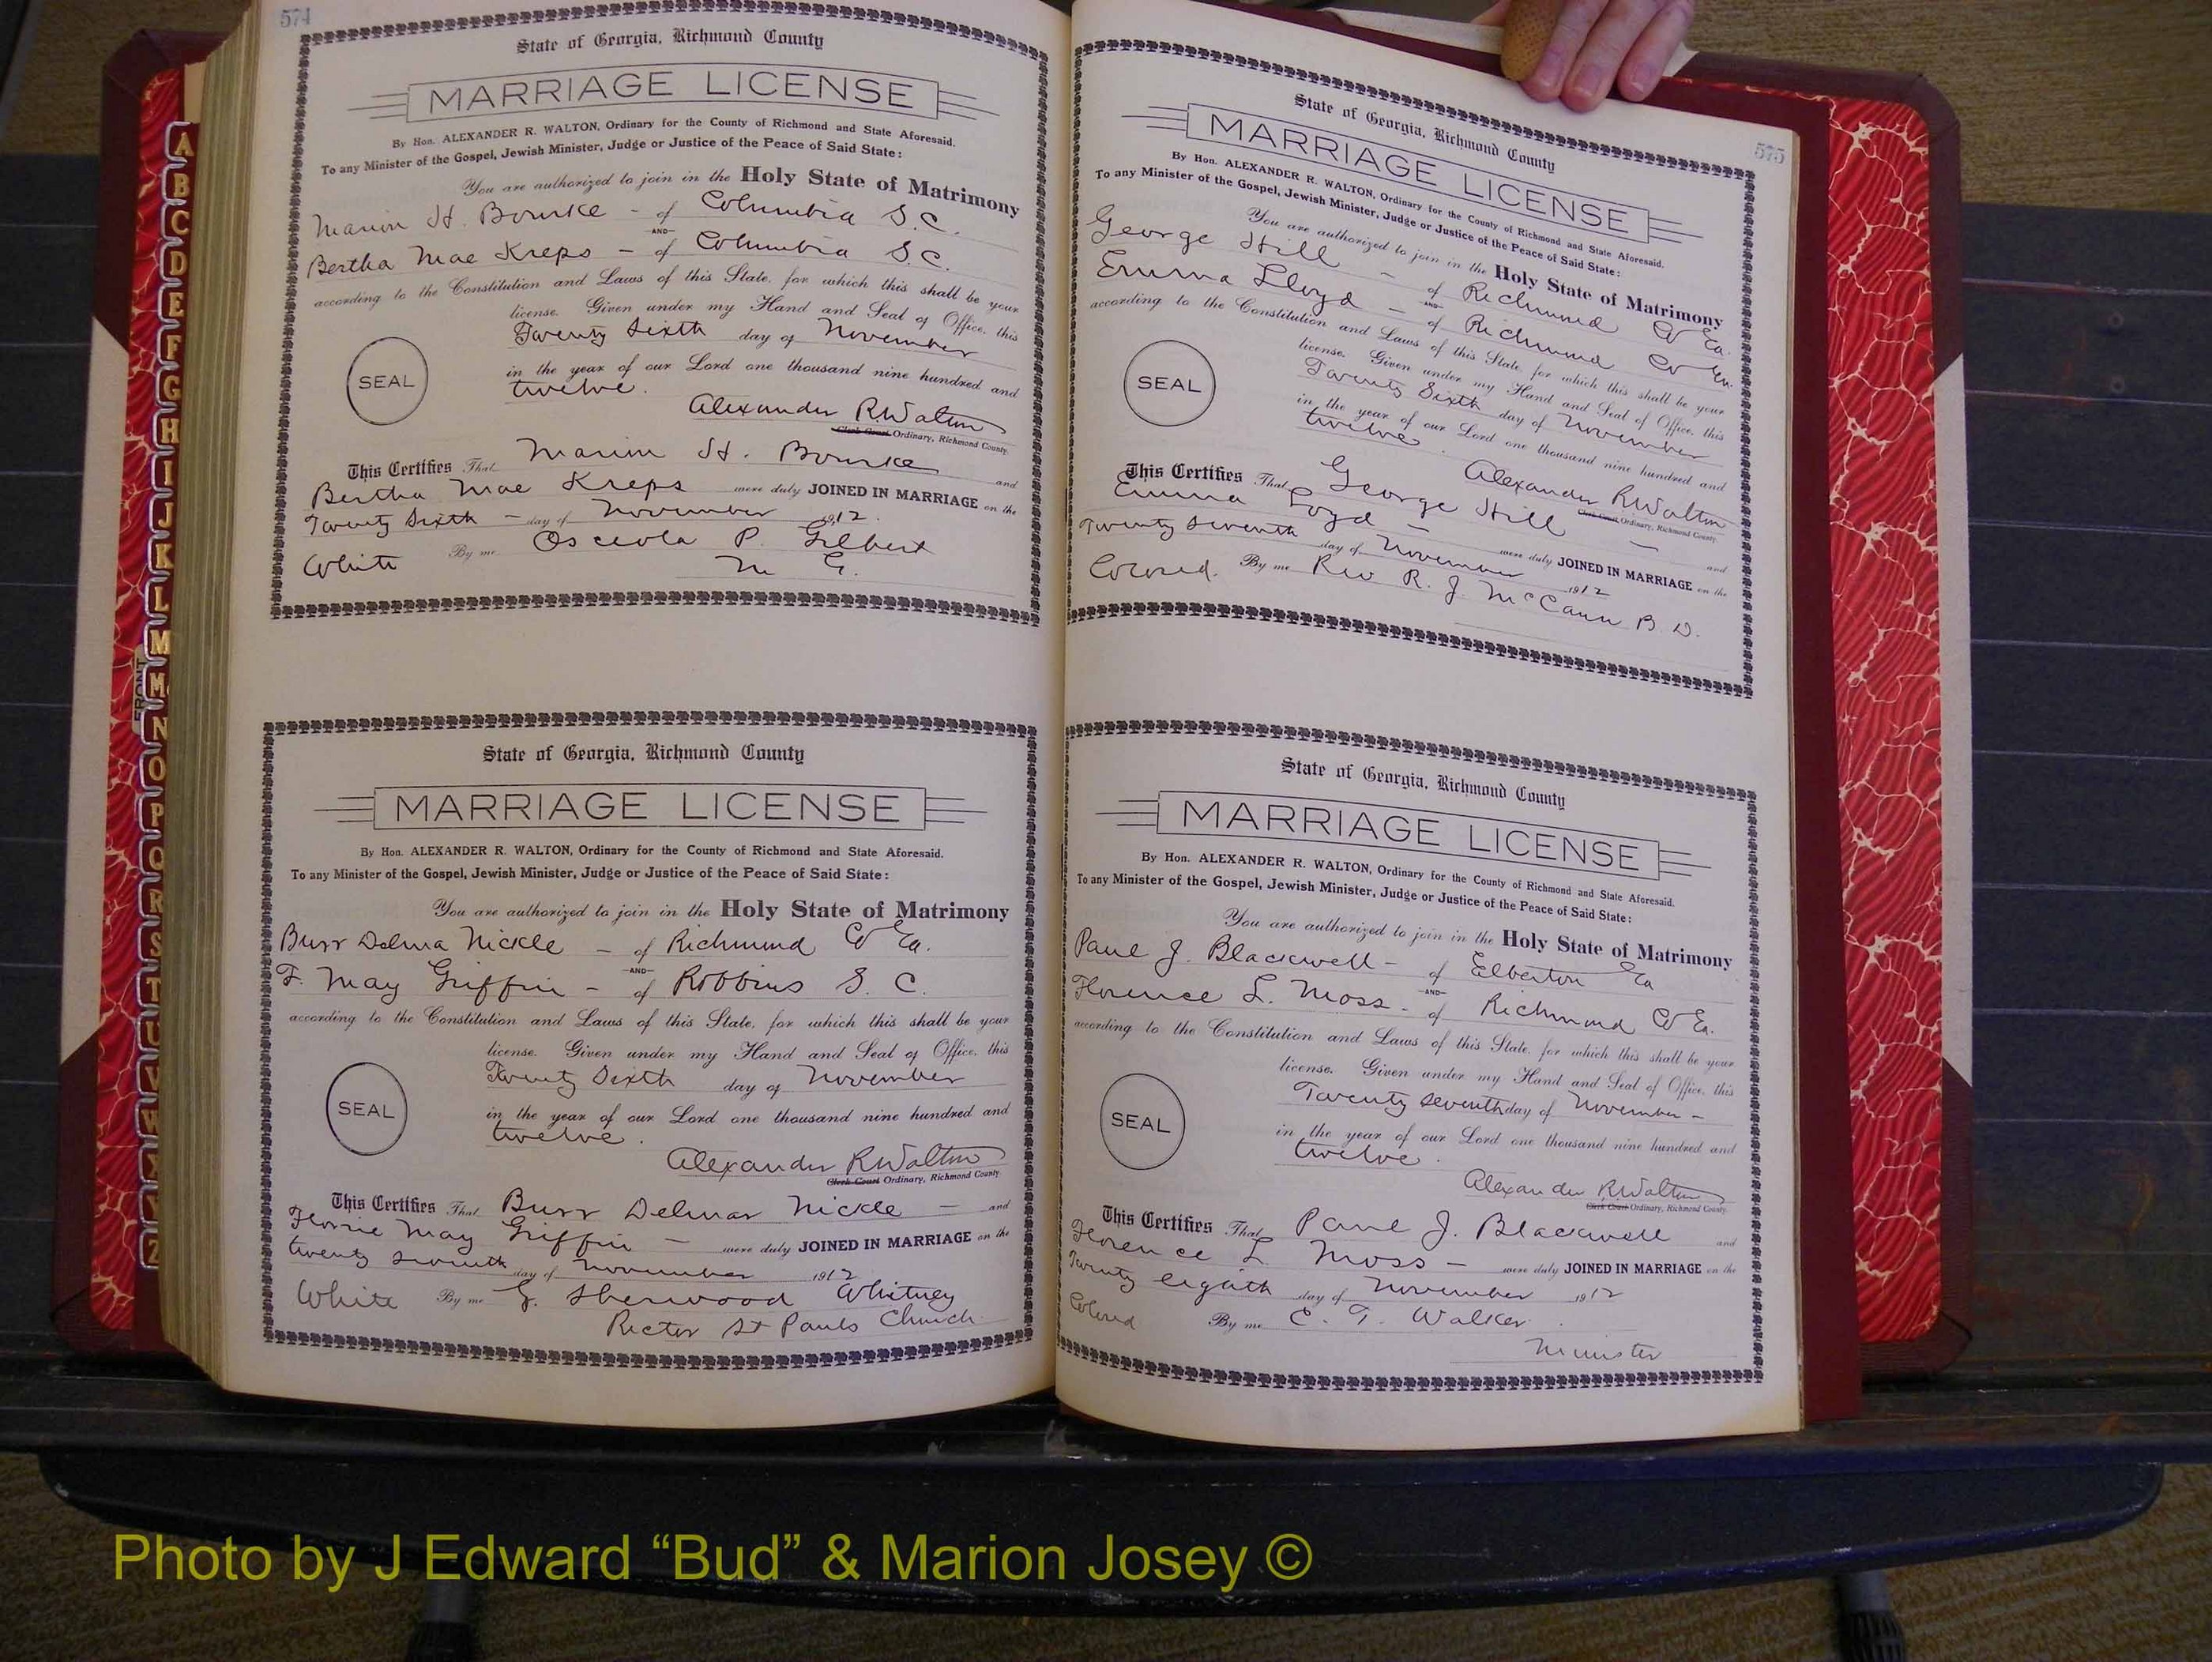 574
State of Georgia, Richmond County
MARRIAGE LICENSE
By Hon. ALEXANDER R. WALTON, Ordinary for the County of Richmond and State Aforesaid.
To any Minister of the Gospel, Jewish Minister, Judge or Justice of the Peace of Said State:
You are authorized to join in the Holy State of Matrimony
Marion H. Bourke - of Columbia S.C.
AND
Bertha Mae Kreps - of Columbia S.C.
according to the Constitution and Laws of this State, for which this shall be your
license. Given under my Hand and Seal of Office, this
Twenty Sixth day of November
in the year of our Lord one thousand nine hundred and
twelve.
SEAL
Alexander R Walton
Clerk Court Ordinary, Richmond County.
This Certifies That Marion H. Bourke and
Bertha Mae Kreps were duly JOINED IN MARRIAGE on the
Twenty Sixth - day of November 1912.
White By me Osceola P. Gilbert
M G.
State of Georgia, Richmond County
MARRIAGE LICENSE
By Hon. ALEXANDER R. WALTON, Ordinary for the County of Richmond and State Aforesaid.
To any Minister of the Gospel, Jewish Minister, Judge or Justice of the Peace of Said State:
You are authorized to join in the Holy State of Matrimony
Burr Delma Nickle - of Richmond Co Ga.
AND
F. May Griffin - of Robbins S. C.
according to the Constitution and Laws of this State, for which this shall be your
license. Given under my Hand and Seal of Office, this
Twenty Sixth day of November
in the year of our Lord one thousand nine hundred and
twelve.
SEAL
Alexander R Walton
Clerk Court Ordinary, Richmond County
This Certifies That Burr Delmar Nickle - and
Florrie May Griffin - were duly JOINED IN MARRIAGE on the
twenty seventh day of November 1912
White By me G. Sherwood Whitney
Rector St Pauls Church.
575
State of Georgia, Richmond County
MARRIAGE LICENSE
By Hon. ALEXANDER R. WALTON, Ordinary for the County of Richmond and State Aforesaid.
To any Minister of the Gospel, Jewish Minister, Judge or Justice of the Peace of Said State:
You are authorized to join in the Holy State of Matrimony
George Hill - of Richmond Co Ga.
AND
Emma Lloyd - of Richmond Co Ga.
according to the Constitution and Laws of this State, for which this shall be your
license. Given under my Hand and Seal of Office, this
Twenty Sixth day of November
in the year of our Lord one thousand nine hundred and
twelve.
SEAL
Alexander R Walton
Clerk Court Ordinary, Richmond County.
This Certifies That George Hill - and
Emma Loyd - were duly JOINED IN MARRIAGE on the
Twenty seventh day of November 1912
Colored. By me Rev R. J. McCann B. D.
State of Georgia, Richmond County
MARRIAGE LICENSE
By Hon. ALEXANDER R. WALTON, Ordinary for the County of Richmond and State Aforesaid.
To any Minister of the Gospel, Jewish Minister, Judge or Justice of the Peace of Said State:
You are authorized to join in the Holy State of Matrimony
Paul J. Blackwell - of Elberton Ga
AND
Florence L. Moss - of Richmond Co Ga.
according to the Constitution and Laws of this State, for which this shall be your
license. Given under my Hand and Seal of Office, this
Twenty seventh day of November -
in the year of our Lord one thousand nine hundred and
twelve.
SEAL
Alexander R. Walton
Clerk Court Ordinary, Richmond County.
This Certifies That Paul J. Blackwell and
Florence L Moss - were duly JOINED IN MARRIAGE on the
Twenty eigath day of November 1912
Colored By me C. T. Walker.
Minister
A
B
C
D
E
F
G
H
I
J
K
L
M
Mc
N
O
P
Q
R
S
T
U
V
W
X
Y
Z
FRONT
Photo by J Edward “Bud” & Marion Josey ©